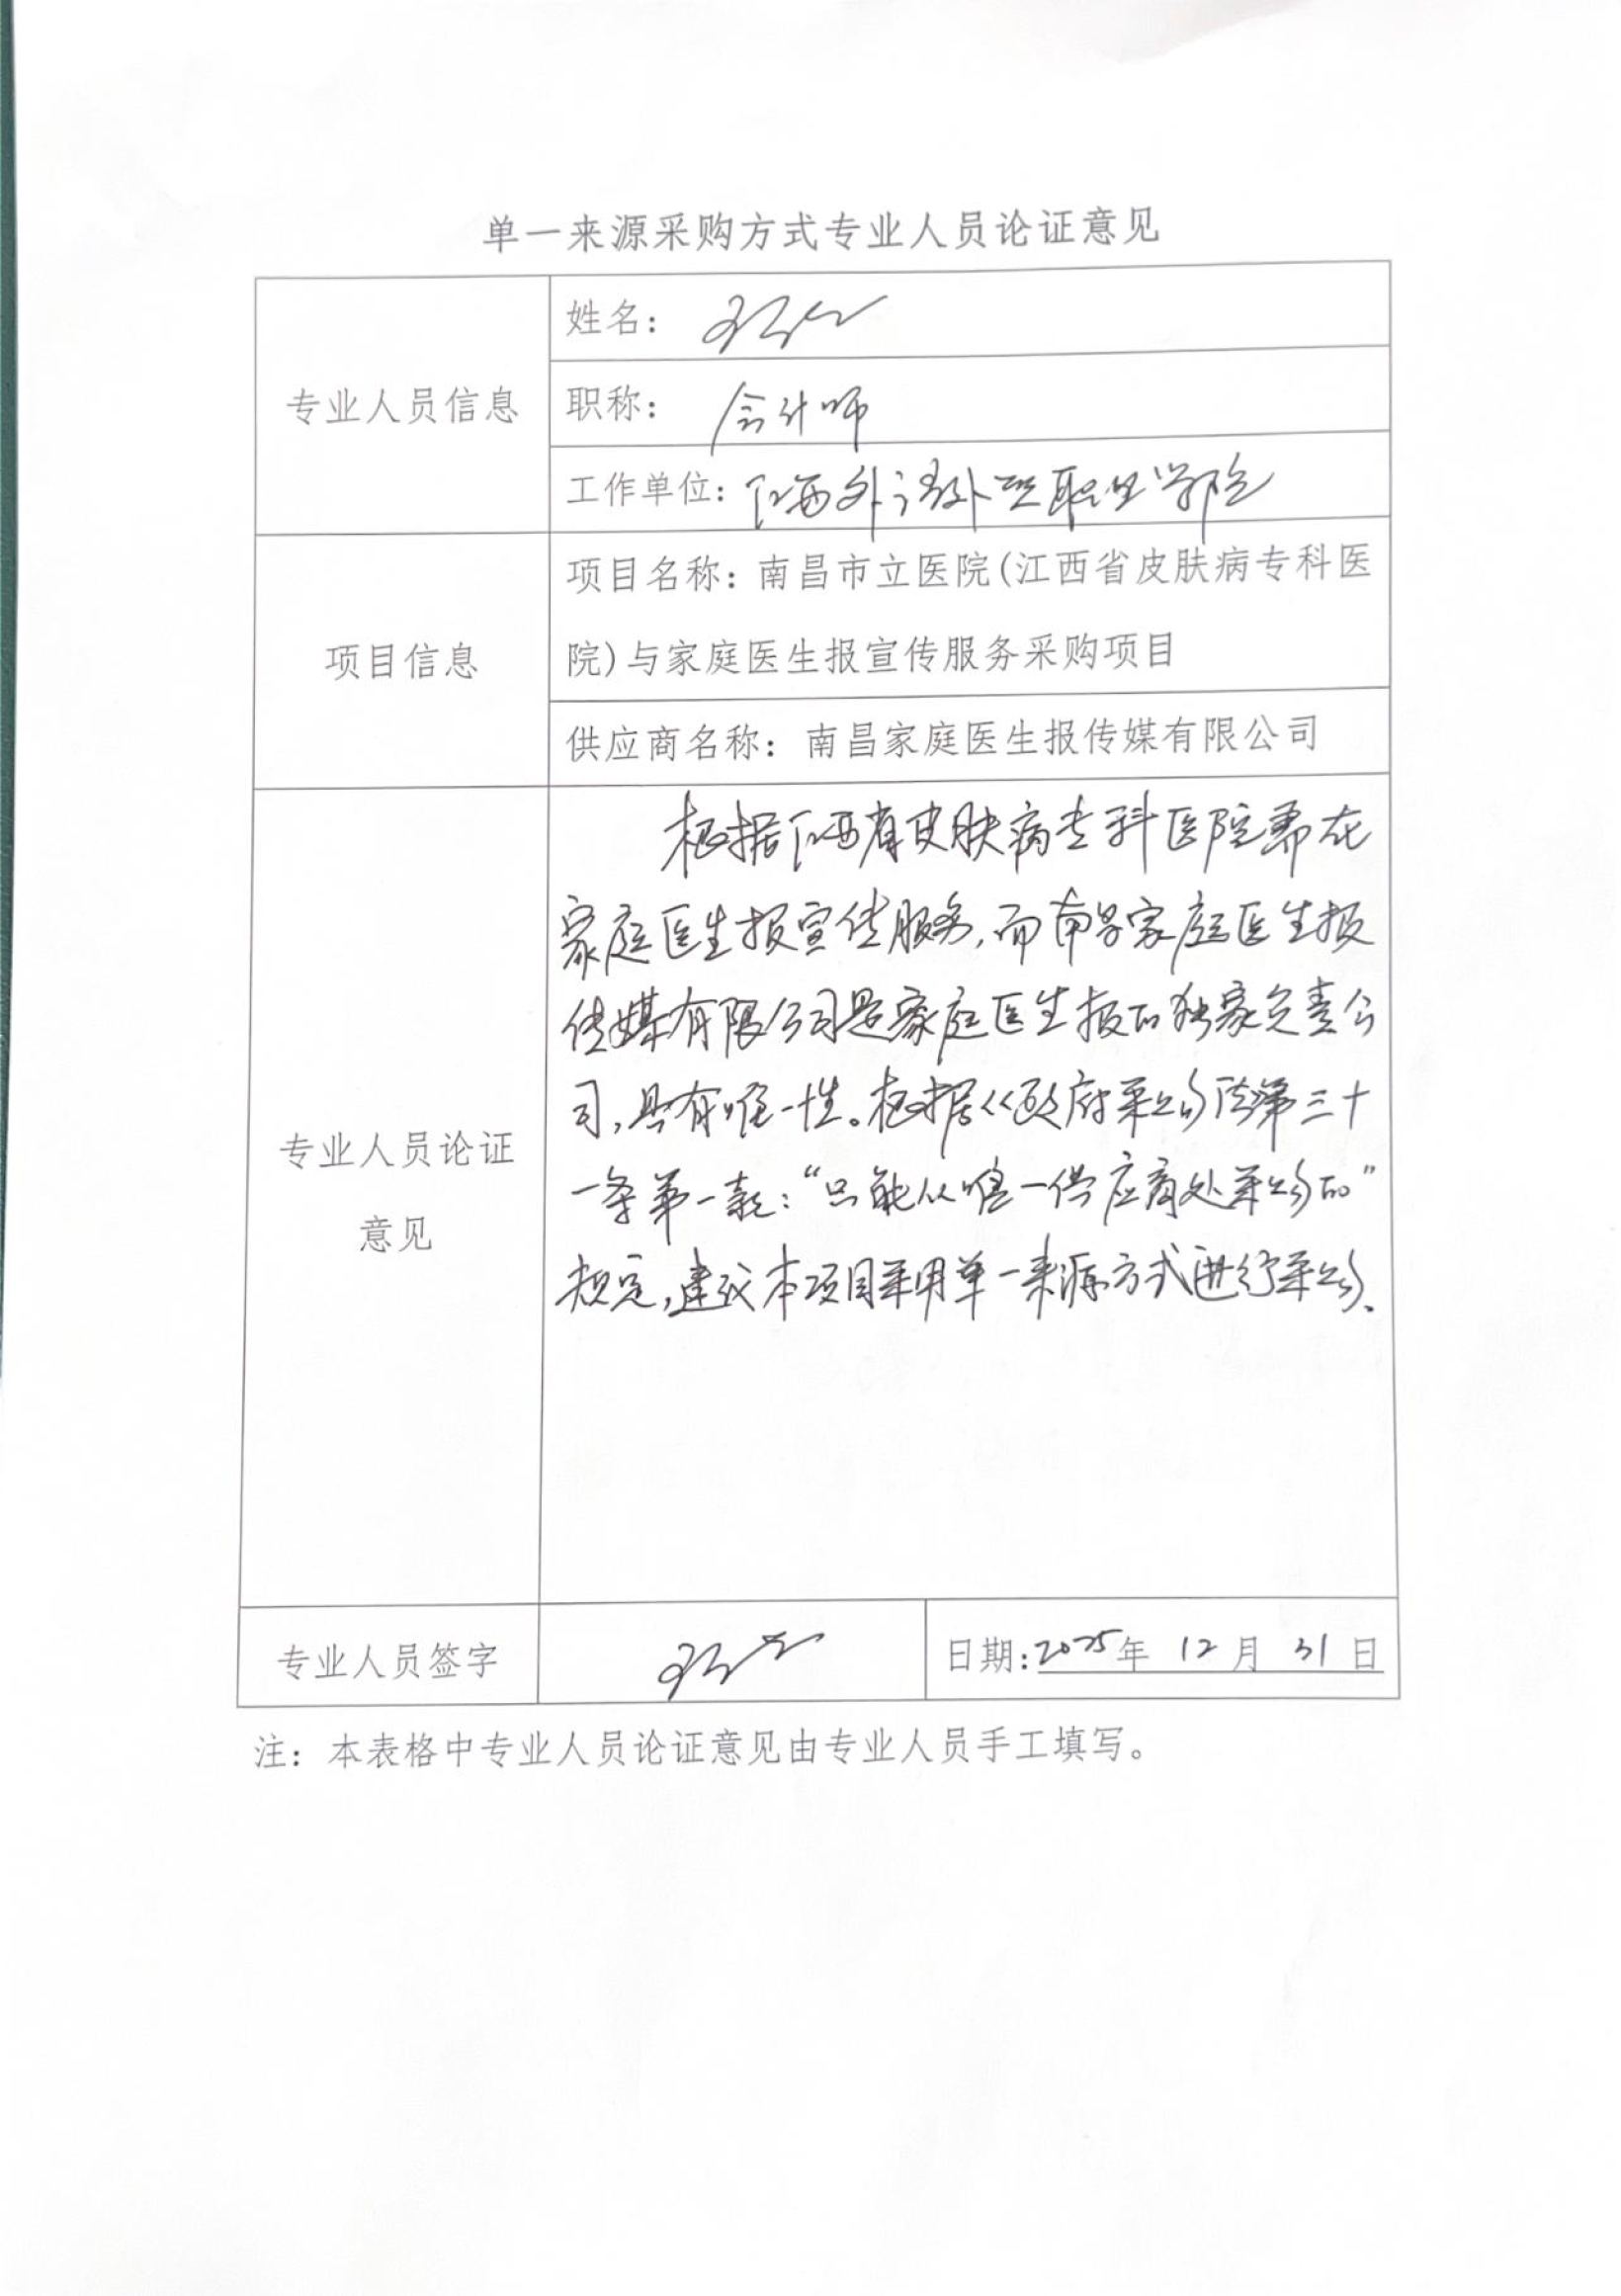 单一来源采购方式专业人员论证意见
专业人员信息
姓名：
职称：会计师
工作单位：江西外语外贸职业学院
项目信息
项目名称：南昌市立医院(江西省皮肤病专科医
院)与家庭医生报宣传服务采购项目
供应商名称：南昌家庭医生报传媒有限公司
专业人员论证
意见
根据江西省皮肤病专科医院需在
家庭医生报宣传服务,而南昌家庭医生报
传媒有限公司是家庭医生报的独家负责公
司,具有唯一性。根据《政府采购法第三十
一条第一款:“只能从唯一供应商处采购的”
规定,建议本项目采用单一来源方式进行采购、
专业人员签字
日期:2025年 12月 31日
注：本表格中专业人员论证意见由专业人员手工填写。